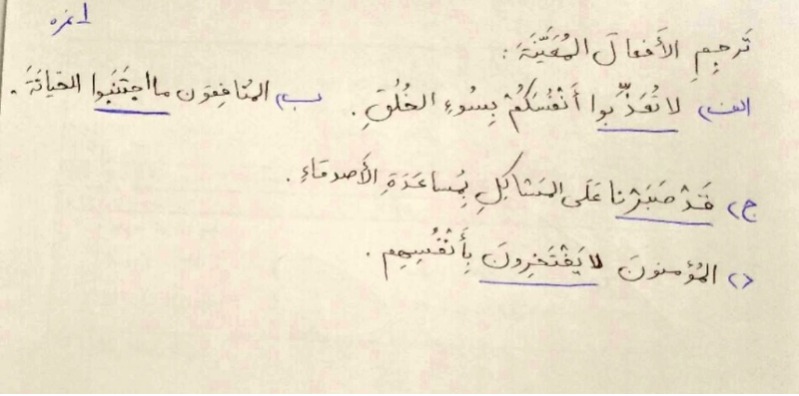 ١ نمره
تَرجِمِ الأَفعالَ المُعَيَّنَةَ :
الف) لا تُعَذِّبوا أَنْفُسَكُمْ بِسُوءِ الخُلُقِ . ب) المُنافِقون ما اجتَنَبوا الخیانَةَ .
ج) قَدْ صَبَرْنا عَلَى المَشاكِلِ بِمُساعَدَةِ الأَصدقاءِ .
د) المُؤمنونَ لا يَفْتَخِرونَ بِأَنْفُسِهِم .